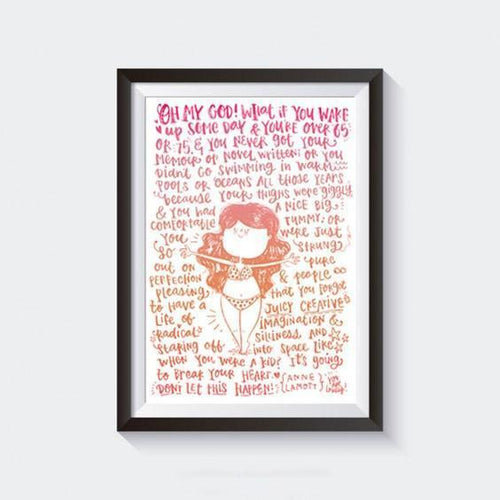 OH MY GOD! WHAT IF YOU WAKE
UP SOME DAY & YOU'RE OVER 65
OR 75, & YOU NEVER GOT YOUR
MEMOIR OR NOVEL WRITTEN; OR YOU
DIDN'T GO SWIMMING IN WARM
POOLS OR OCEANS ALL THOSE YEARS
BECAUSE YOUR THIGHS WERE JIGGLY
& YOU HAD A NICE BIG
COMFORTABLE TUMMY; OR
YOU WERE JUST
SO STRUNG
OUT ON PURE
PERFECTION & PEOPLE
PLEASING THAT YOU FORGOT
TO HAVE A JUICY CREATIVE
LIFE OF IMAGINATION &
RADICAL SILLINESS AND
STARING OFF INTO SPACE LIKE
WHEN YOU WERE A KID? IT'S GOING
TO BREAK YOUR HEART. {ANNE
DON'T LET THIS HAPPEN! LAMOTT}